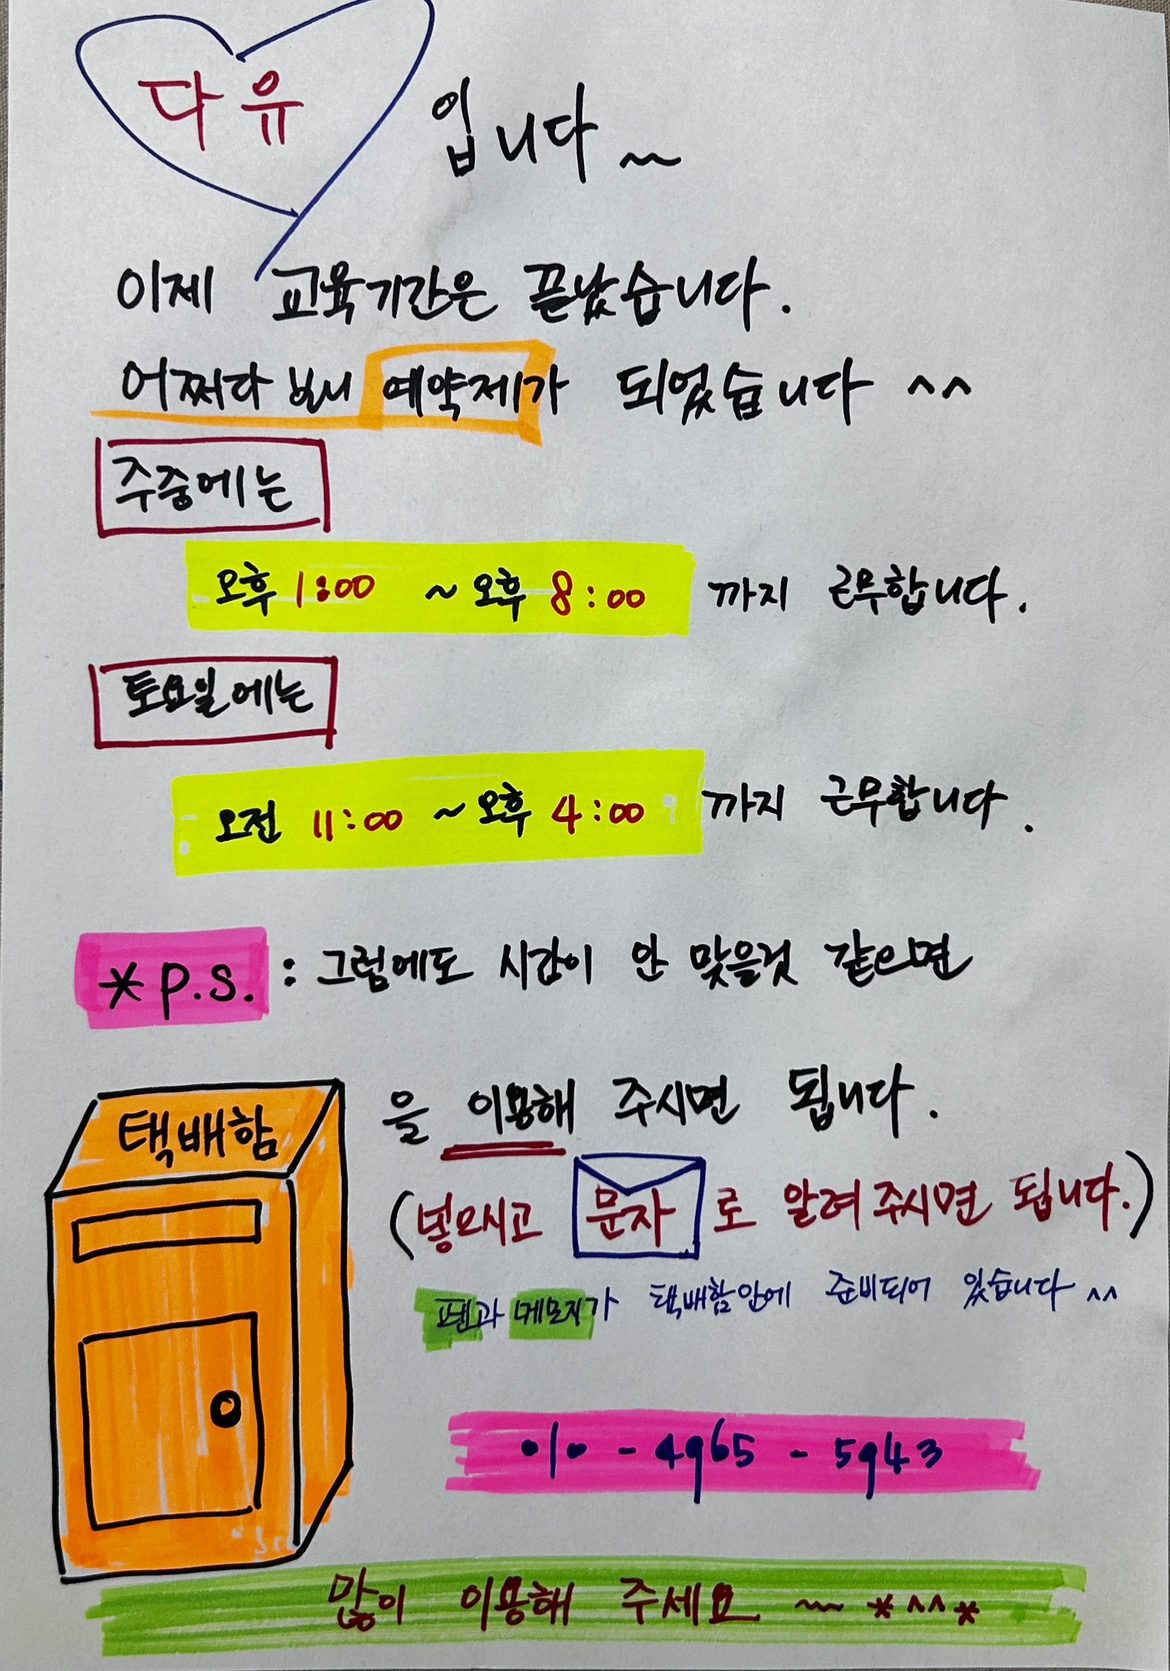 다유 입니다~
이제 교육기간은 끝났습니다.
어쩌다 보니 예약제가 되었습니다 ^^
주중에는
오후 1:00 ~ 오후 8:00 까지 근무합니다.
토요일에는
오전 11:00 ~ 오후 4:00 까지 근무합니다.
*p.s. : 그럼에도 시간이 안 맞을것 같으면
택배함 을 이용해 주시면 됩니다.
(넣으시고 문자 로 알려주시면 됩니다.)
펜과 메모지가 택배함안에 준비되어 있습니다 ^^
010 - 4965 - 5943
많이 이용해 주세요 ~~ *^^*